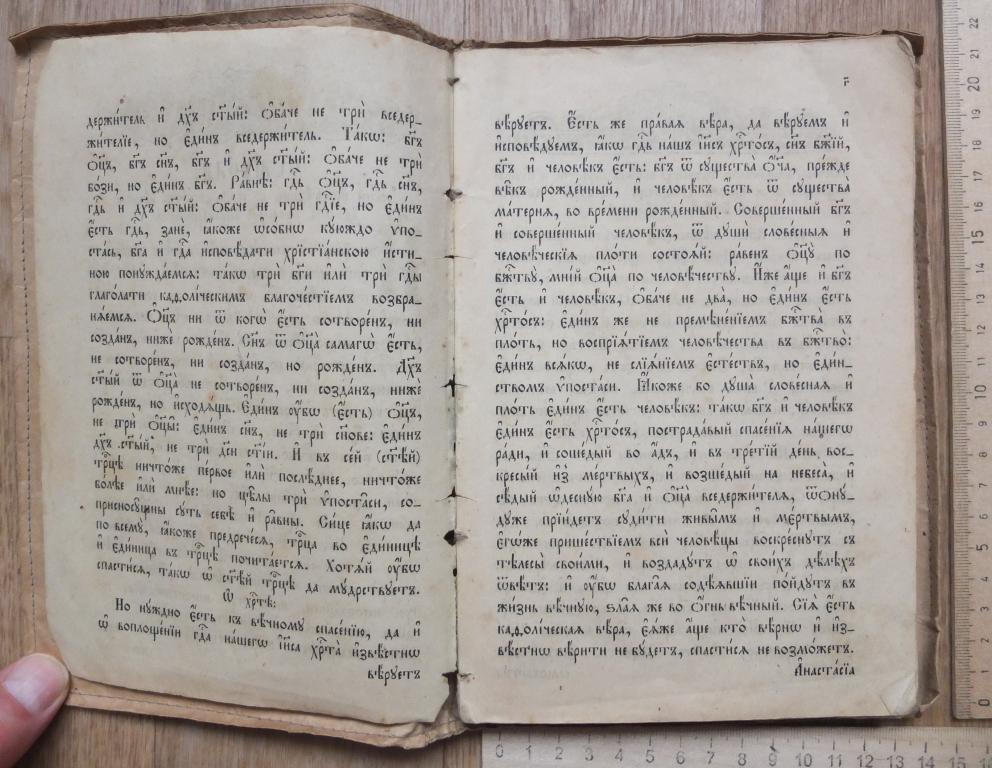 держи́тель и҆ дх҃ъ ст҃ы́й: ѻ҆ба́че не трѝ вседер_
жи́телїе, но є҆ди́нъ вседержи́тель. Та́кѡ: бг҃ъ
ѻ҆ц҃ъ, бг҃ъ сн҃ъ, бг҃ъ и҆ дх҃ъ ст҃ы́й: ѻ҆ба́че не трѝ
бо́зи, но є҆ди́нъ бг҃ъ. Ра́внѣ: гдⷭ҇ь ѻ҆ц҃ъ, гдⷭ҇ь сн҃ъ,
гдⷭ҇ь и҆ дх҃ъ ст҃ы́й: ѻ҆ба́че не трѝ гдⷭ҇їе, но є҆ди́нъ
є҆́сть гдⷭ҇ь, занѐ, ꙗ҆́коже ѡ҆со́бнѡ ку́юждо ѵ҆по_
ста́сь, бг҃а и҆ гдⷭ҇а и҆сповѣ́дати хрїстїа́нскою и҆́сти_
ною понужда́емсѧ: та́кѡ трѝ бг҃и и҆лѝ трѝ гдⷭ҇ы
глаго́лати каѳоли́ческимъ благоче́стїемъ возбра_
нѧ́емсѧ. Ѻ҆ц҃ъ ни ѿ когѡ̀ є҆́сть сотворе́нъ, ни
созда́нъ, нижѐ рожде́нъ. Сн҃ъ ѿ ѻ҆ц҃а̀ самагѡ̀ є҆́сть,
не сотворе́нъ, ни созда́нъ, но рожде́нъ. Дх҃ъ
ст҃ы́й ѿ ѻ҆ц҃а̀ не сотворе́нъ, ни созда́нъ, нижѐ
рожде́нъ, но и҆сходѧ́щь. Є҆ди́нъ ᲂу҆̀бѡ (є҆́сть) ѻ҆ц҃ъ,
не трѝ ѻ҆ц҃ы̀: є҆ди́нъ сн҃ъ, не трѝ сн҃ове: є҆ди́нъ
дх҃ъ ст҃ы́й, не трѝ дс҃и ст҃і́и. И҆ въ се́й (ст҃ѣ́й)
трⷪ҇цѣ ничто́же пе́рвое и҆лѝ послѣ́днее, ничто́же
бо́лѣе и҆лѝ мнѣ́е: но цѣ́лы трѝ ѵ҆поста́си, со_
присносу́щны су́ть себѣ̀ и҆ ра́вны. Си́це ꙗ҆́кѡ да
по всему̀, ꙗ҆́коже предрече́сѧ, трⷪ҇ца во є҆ди́ницѣ
и҆ є҆ди́ница въ трⷪ҇цѣ почита́етсѧ. Хотѧ́й ᲂу҆̀бѡ
спасти́сѧ, та́кѡ ѡ҆ ст҃ѣ́й трⷪ҇цѣ да му́дрствуетъ.
Ѡ҆ хрⷭ҇тѣ̀:
Но ну́ждно є҆́сть къ вѣ́чному спасе́нїю, да и҆
ѡ҆ воплоще́нїи гдⷭ҇а на́шегѡ і҆и҃са хрⷭ҇та̀ и҆звѣ́стнѡ
вѣ́руетъ
г҃
вѣ́руетъ. Є҆́сть же пра́ваѧ вѣ́ра, да вѣ́руемъ и҆
и҆сповѣ́дуемъ, ꙗ҆́кѡ гдⷭ҇ь на́шъ і҆и҃съ хрⷭ҇то́съ, сн҃ъ бж҃їй,
бг҃ъ и҆ человѣ́къ є҆́сть: бг҃ъ ѿ существа̀ ѻ҆́ч҃а, пре́жде
вѣ̑къ рожде́нный, и҆ человѣ́къ є҆́сть ѿ существа̀
ма́терня, во вре́мени рожде́нный. Соверше́нный бг҃ъ
и҆ соверше́нный человѣ́къ, ѿ душѝ слове́сныѧ и҆
человѣ́ческїѧ пло́ти состоѧ́й: ра́венъ ѻ҆ц҃у̀ по
бжⷭ҇тву̀, мні́й ѻ҆ц҃а̀ по человѣ́честву. И҆́же а҆́ще и҆ бг҃ъ
є҆́сть и҆ человѣ́къ, ѻ҆ба́че не два̀, но є҆ди́нъ є҆́сть
хрⷭ҇то́съ: є҆ди́нъ же не премѣне́нїемъ бжⷭ҇тва̀ въ
пло́ть, но воспрїѧ́тїемъ человѣ́чества въ бжⷭ҇тво̀:
є҆ди́нъ всѧ́кѡ, не слїѧ́нїемъ є҆сте́ствъ, но є҆ди́н_
ствомъ ѵ҆поста́си. Ꙗ҆́коже бо душа̀ слове́снаѧ и҆
пло́ть є҆ди́нъ є҆́сть человѣ́къ: та́кѡ бг҃ъ и҆ человѣ́къ
є҆ди́нъ є҆́сть хрⷭ҇то́съ, пострада́вый спасе́нїѧ на́шегѡ
ра́ди, и҆ соше́дый во а҆́дъ, и҆ въ тре́тїй де́нь вос_
кресы́й и҆з̾ ме́ртвыхъ, и҆ возше́дый на небеса̀, и҆
сѣ́дый ѡ҆десну́ю бг҃а и҆ ѻ҆ц҃а̀ вседержи́телѧ, ѿону_
дуже прїи́детъ суди́ти живы̑мъ и҆ мє́ртвымъ,
є҆гѡ́же прише́ствїемъ всѝ человѣ́цы воскре́снутъ съ
тѣлесы̀ свои́ми, и҆ воздаду́тъ ѡ҆ свои́хъ дѣ́лѣхъ
ѿвѣ́тъ: и҆ ᲂу҆̀бѡ блага̑ѧ содѣ́ѧвшїи по́йдутъ въ
жи́знь вѣ́чную, ѕла̑ѧ же во ѻ҆́гнь вѣ́чный. Сїѧ̀ є҆́сть
каѳоли́ческаѧ вѣ́ра, є҆ѧ́же а҆́ще кто̀ вѣ́рнѡ и҆ и҆з_
вѣ́стнѡ вѣ́рити не бу́детъ, спасти́сѧ не возмо́жетъ.
А҆наста́сїа
0 1 2 3 4 5 6 7 8 9 10 11 12 13 14 15
0 1 2 3 4 5 6 7 8 9 10 11 12 13 14 15 16 17 18 19 20 21 22